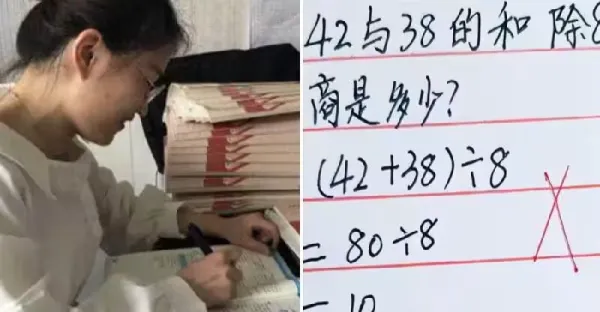 42与38的和 除8
商是多少?
(42+38)÷8
= 80÷8
= 10